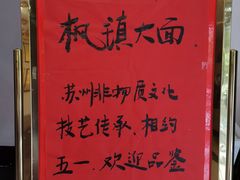 枫镇大面
苏州非物质文化
技艺传承.相约
五一.欢迎品鉴